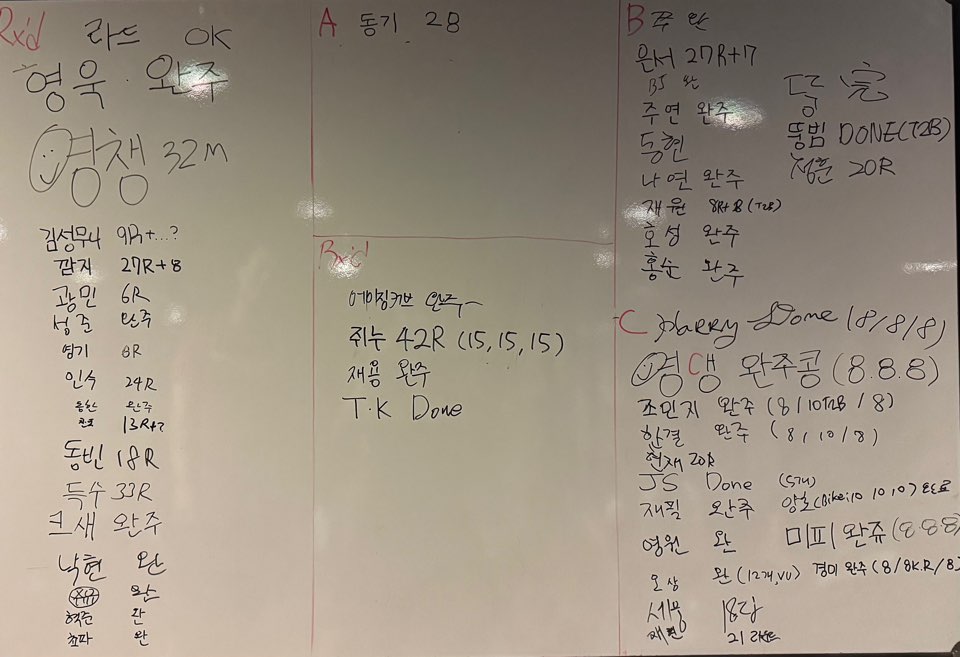 Rx'd 라드 OK
영욱 완주
영챙 32m
김성무니 9R+...?
깜지 27R+8
광민 6R
성준 완주
영기 8R
인식 24R
완주
13R+2
동빈 18R
득수 33R
크새 완주
낙현 완
혁준 완
초파 완
A 동기 28
Rx'd
어메이징커브 완주~
쥐누 42R (15,15,15)
재용 완주
T.K Done
B 쭈 완
은서 27R+7
BJ 완
주연 완주
동현
나연 완주
재원 8R+8 (T2B)
호성 완주
홍순 완주
당 完
뚱빔 DONE(T2B)
정훈 20R
C Harry Done (8/8/8)
영갱 완주콩 (8.8.8)
조민지 완주 (8/10T2B/8)
한결 완주 (8/10/8)
현재 20R
JS Done (5개)
재필 완주 양호(Bike:10 10 10) 완료
영원 완 미피 완쥬 (8 8 8)
오상 완 (12개,VU) 경미 완주 (8/8K.R/8)
세웅 18라
재현 21라운드